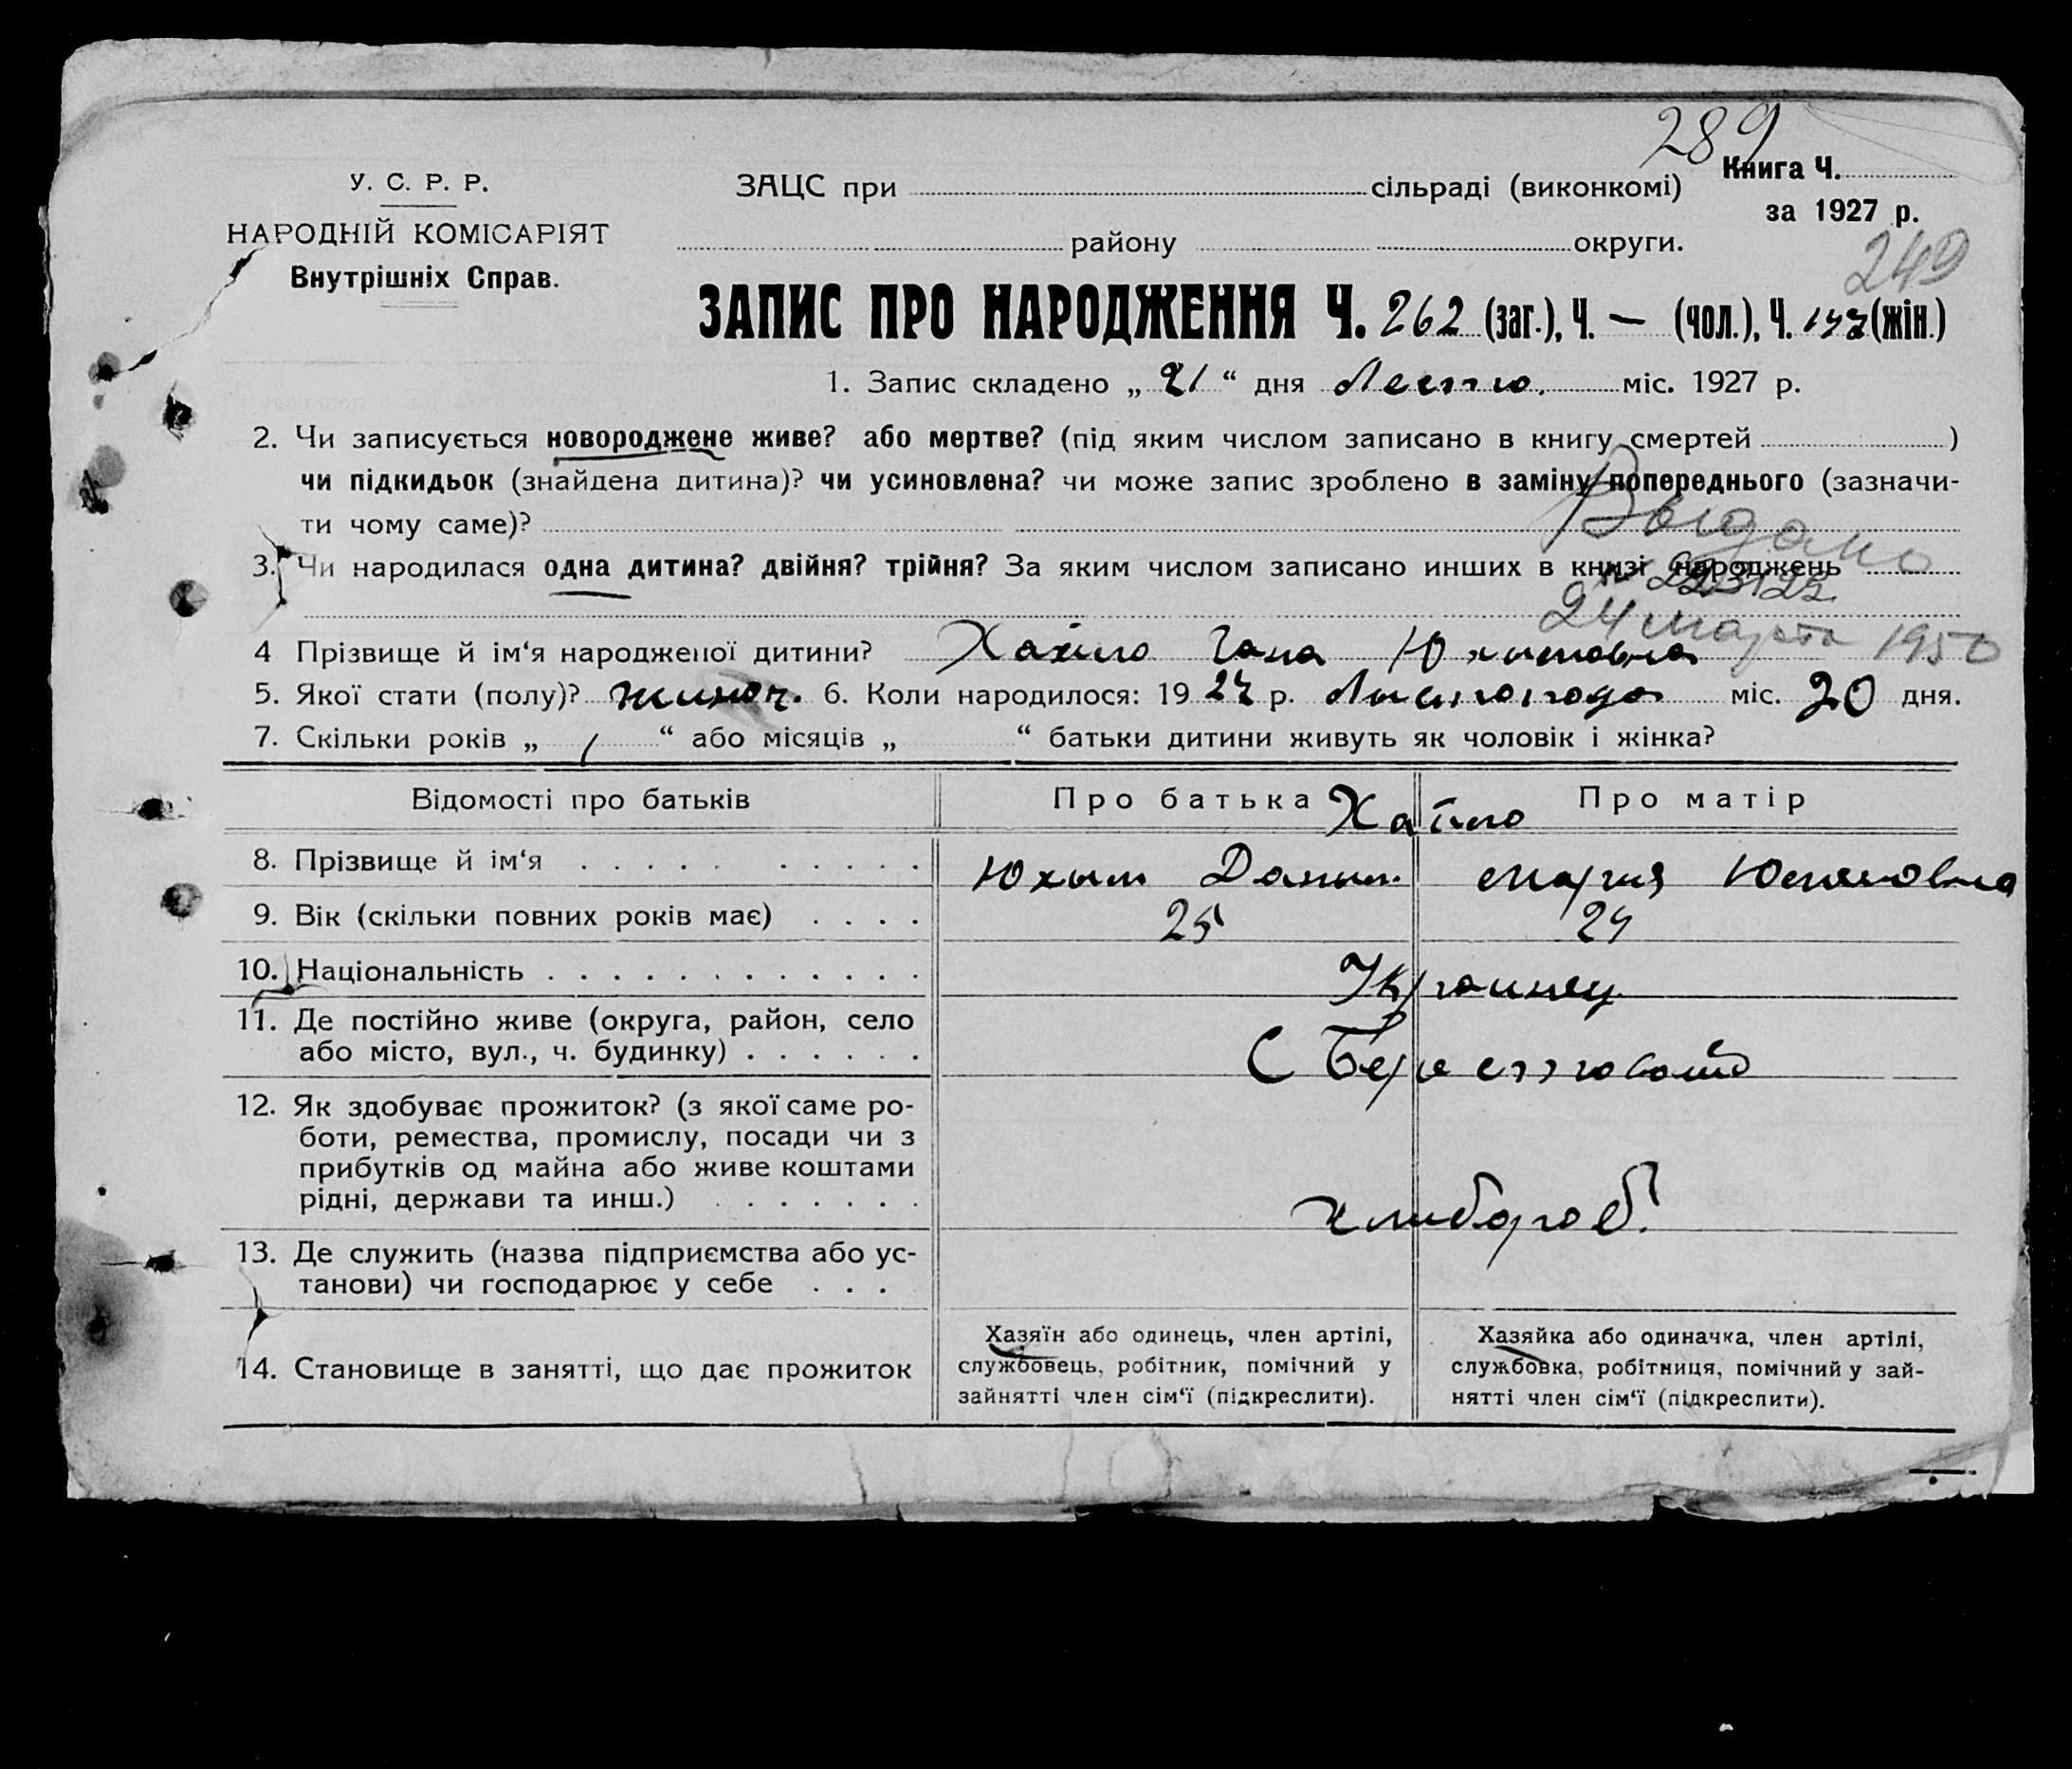 289
У. С. Р. Р.
НАРОДНІЙ КОМІСАРІЯТ
Внутрішніх Справ.
ЗАЦС при сільраді (виконкомі)
Книга Ч.
за 1927 р.
району округи.
249
ЗАПИС ПРО НАРОДЖЕННЯ Ч. 262 (заг.), Ч. — (чол.), Ч. (жін.)
1. Запис складено „ 21 “ дня Листо. міс. 1927 р.
2. Чи записується новороджене живе? або мертве? (під яким числом записано в книгу смертей )
чи підкидьок (знайдена дитина)? чи усиновлена? чи може запис зроблено в заміну попереднього (зазначи-
ти чому саме)?
Выдано
3. Чи народилася одна дитина? двійня? трійня? За яким числом записано инших в книзі народжень
24 марта 1950
4 Прізвище й ім‘я народженої дитини? Хайло Гана Юхымовна
5. Якої стати (полу)? жиноч. 6. Коли народилося: 19 27 р. Листопада міс. 20 дня.
7. Скільки років „ 1 “ або місяців „ “ батьки дитини живуть як чоловік і жінка?
Відомості про батьків Про батька Про матір
Хайло
8. Прізвище й ім‘я Юхым Даныл. Мария
9. Вік (скільки повних років має) 25 24
10. Національність Украинец
11. Де постійно живе (округа, район, село
або місто, вул., ч. будинку) С Берестоват
12. Як здобуває прожиток? (з якої саме ро-
боти, ремества, промислу, посади чи з
прибутків од майна або живе коштами
рідні, держави та инш.) хлибороб.
13. Де служить (назва підприємства або ус-
танови) чи господарює у себе
14. Становище в занятті, що дає прожиток
Хазяїн або одинець, член артілі,
службовець, робітник, помічний у
зайнятті член сім‘ї (підкреслити).
Хазяйка або одиначка, член артілі,
службовка, робітниця, помічний у зай-
нятті член сім‘ї (підкреслити).